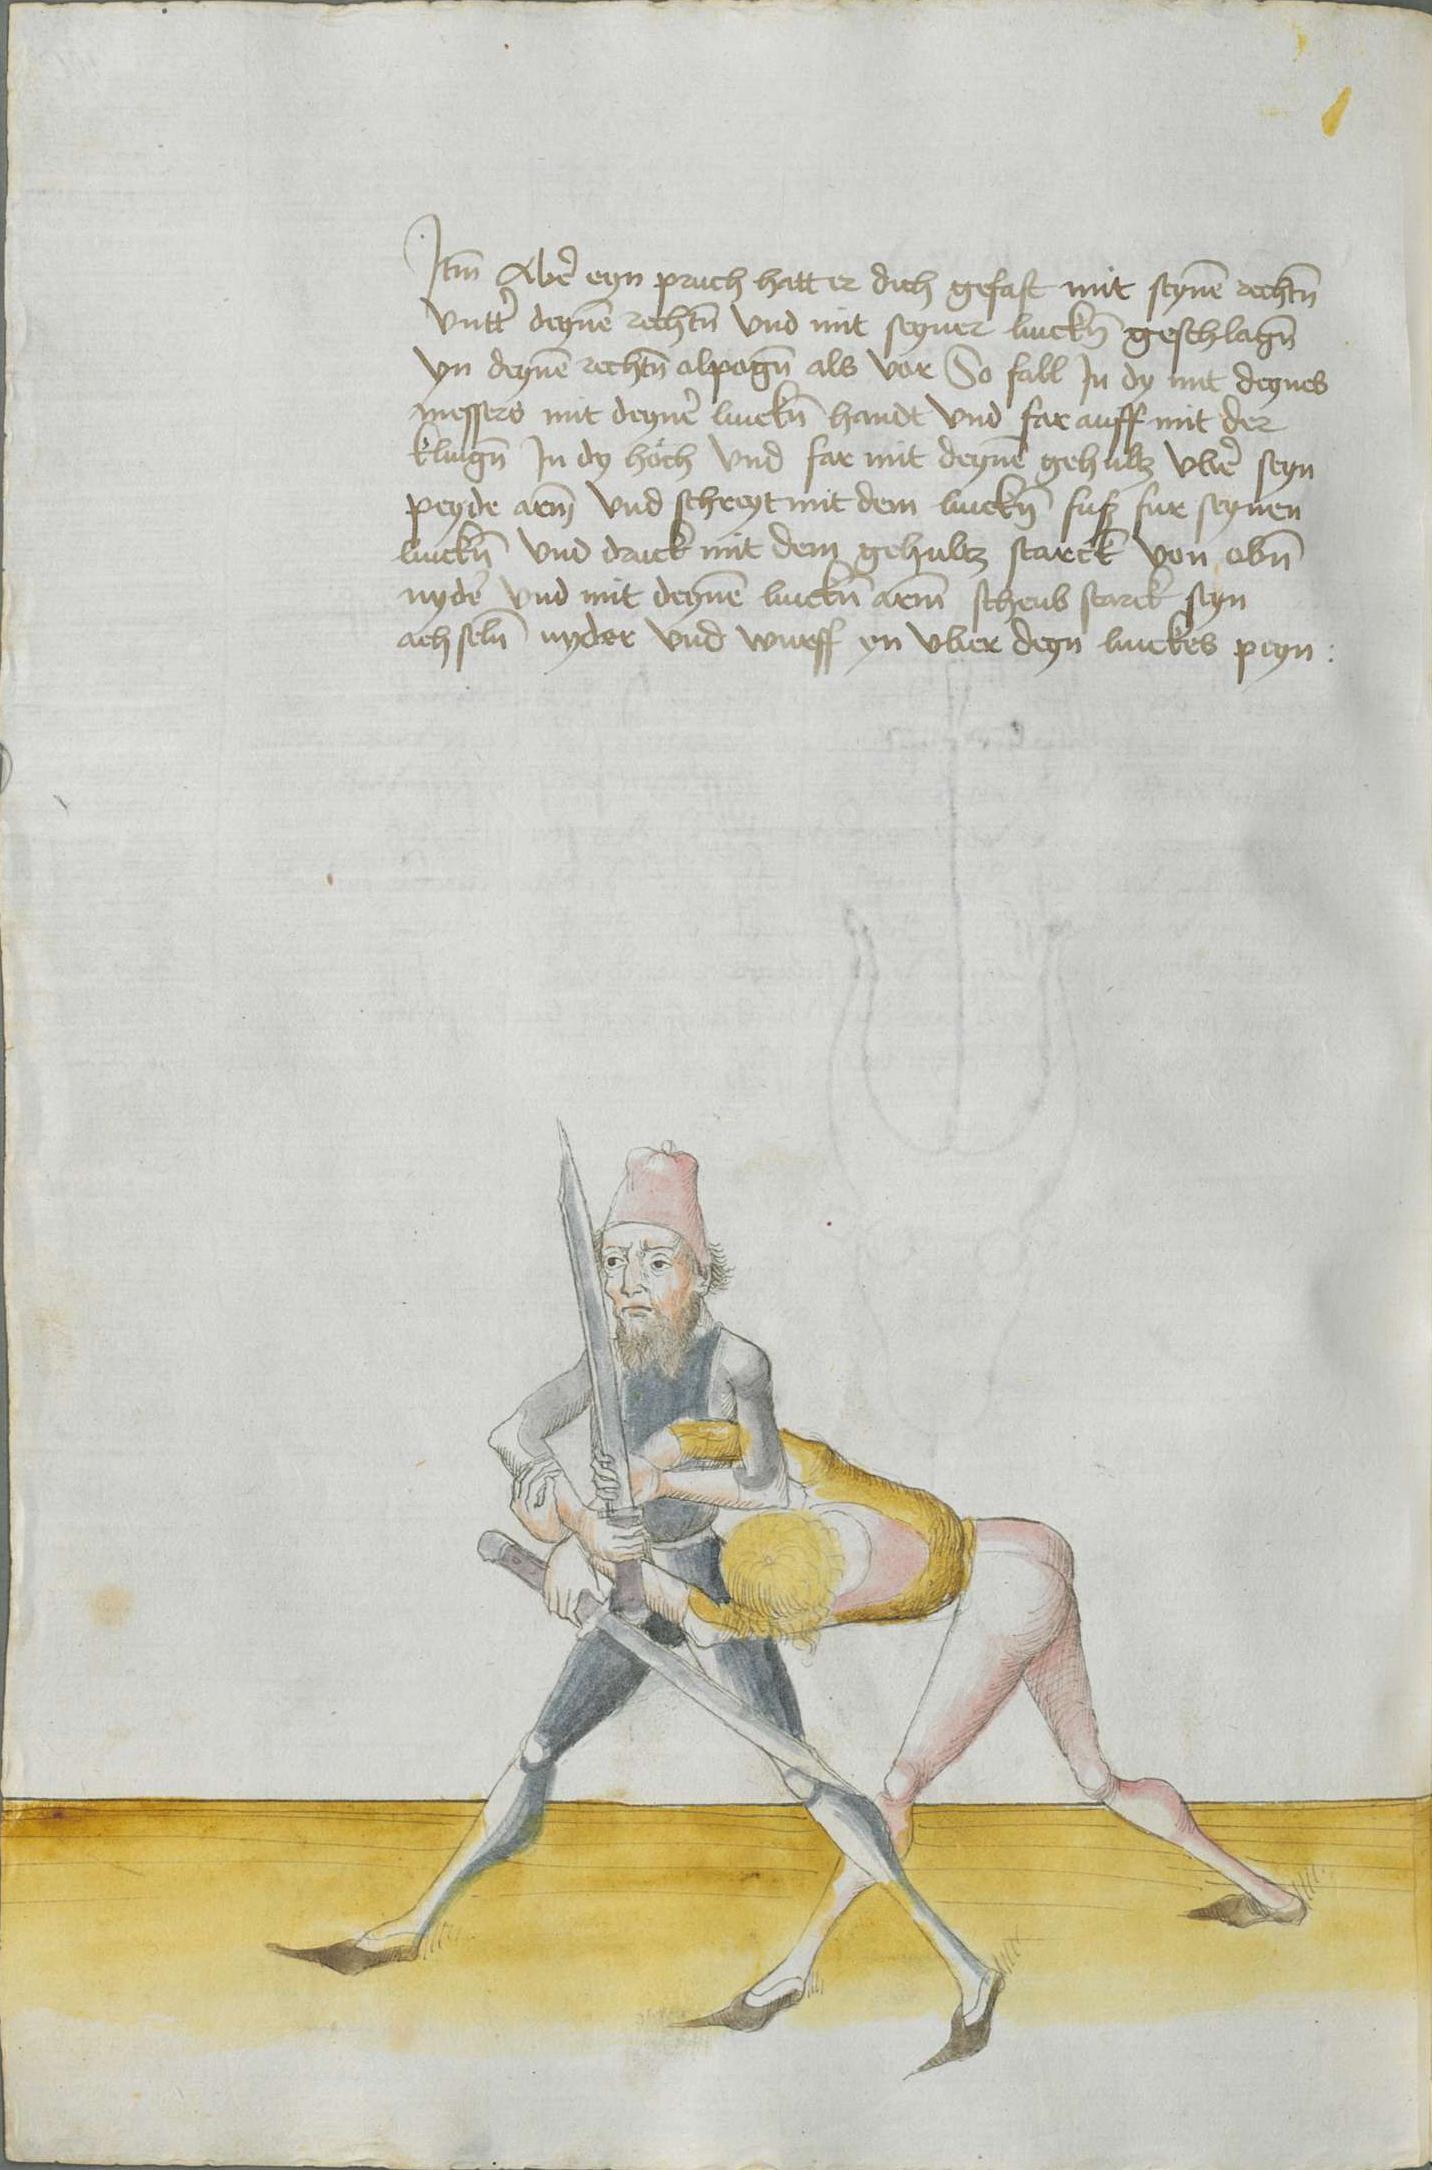 Itm̄ Abe᷑ eyn pruch hatt er dich gefast mit seyne᷑ rechtn̄
Vntt᷑ deyne᷑ rechtn̄ Vnd mit seyner linckn̄ geschlagn̄
yn deyne᷑ rechtn̄ elpogn̄ als vor So fall In dy mit deynes
messers mit deyne᷑ linckn̄ handt Vnd far auff mit der
klingn̄ In dy höch Vnd far mit deyne᷑ gehultz vbe᷑ seyn
peyde arm̄ Vnd schreyt mit dem linckn̄ fuß fur seynen
linckn̄ Vnd druck mit dem gehultz starck von obn̄
nyde᷑ Vnd mit deyne᷑ linckn̄ arm̄ scheub starck seyn
achseln̄ nyder Vnd wurff yn vber deyn linckes peyn :